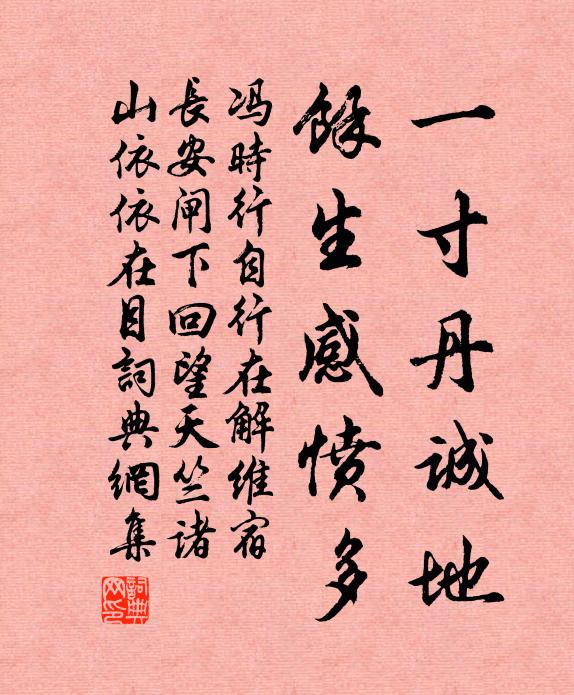 一寸丹誠地
餘生感憤多
冯時行自行在解維宿
長安闸下回望天竺诸
山依依在目詞典網集
詞典網印